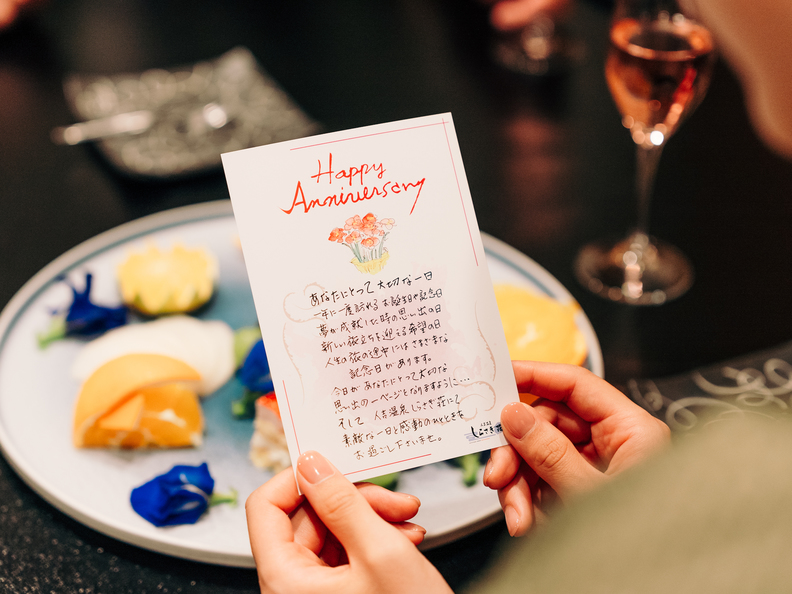 Happy
Anniversary
あなたにとって大切な一日
一年に一度訪れるお誕生日や記念日
夢が成就した時の思い出の日
新しい旅立ちを迎える希望の日
人生の旅の途中にはさまざまな
記念日があります。
今日があなたにとって大切な
思い出の一ページとなりますように…
そして 人吉温泉しらさぎ荘にて
素敵な一日と感動のひとときを
お過ごし下さいませ。
しらさぎ荘